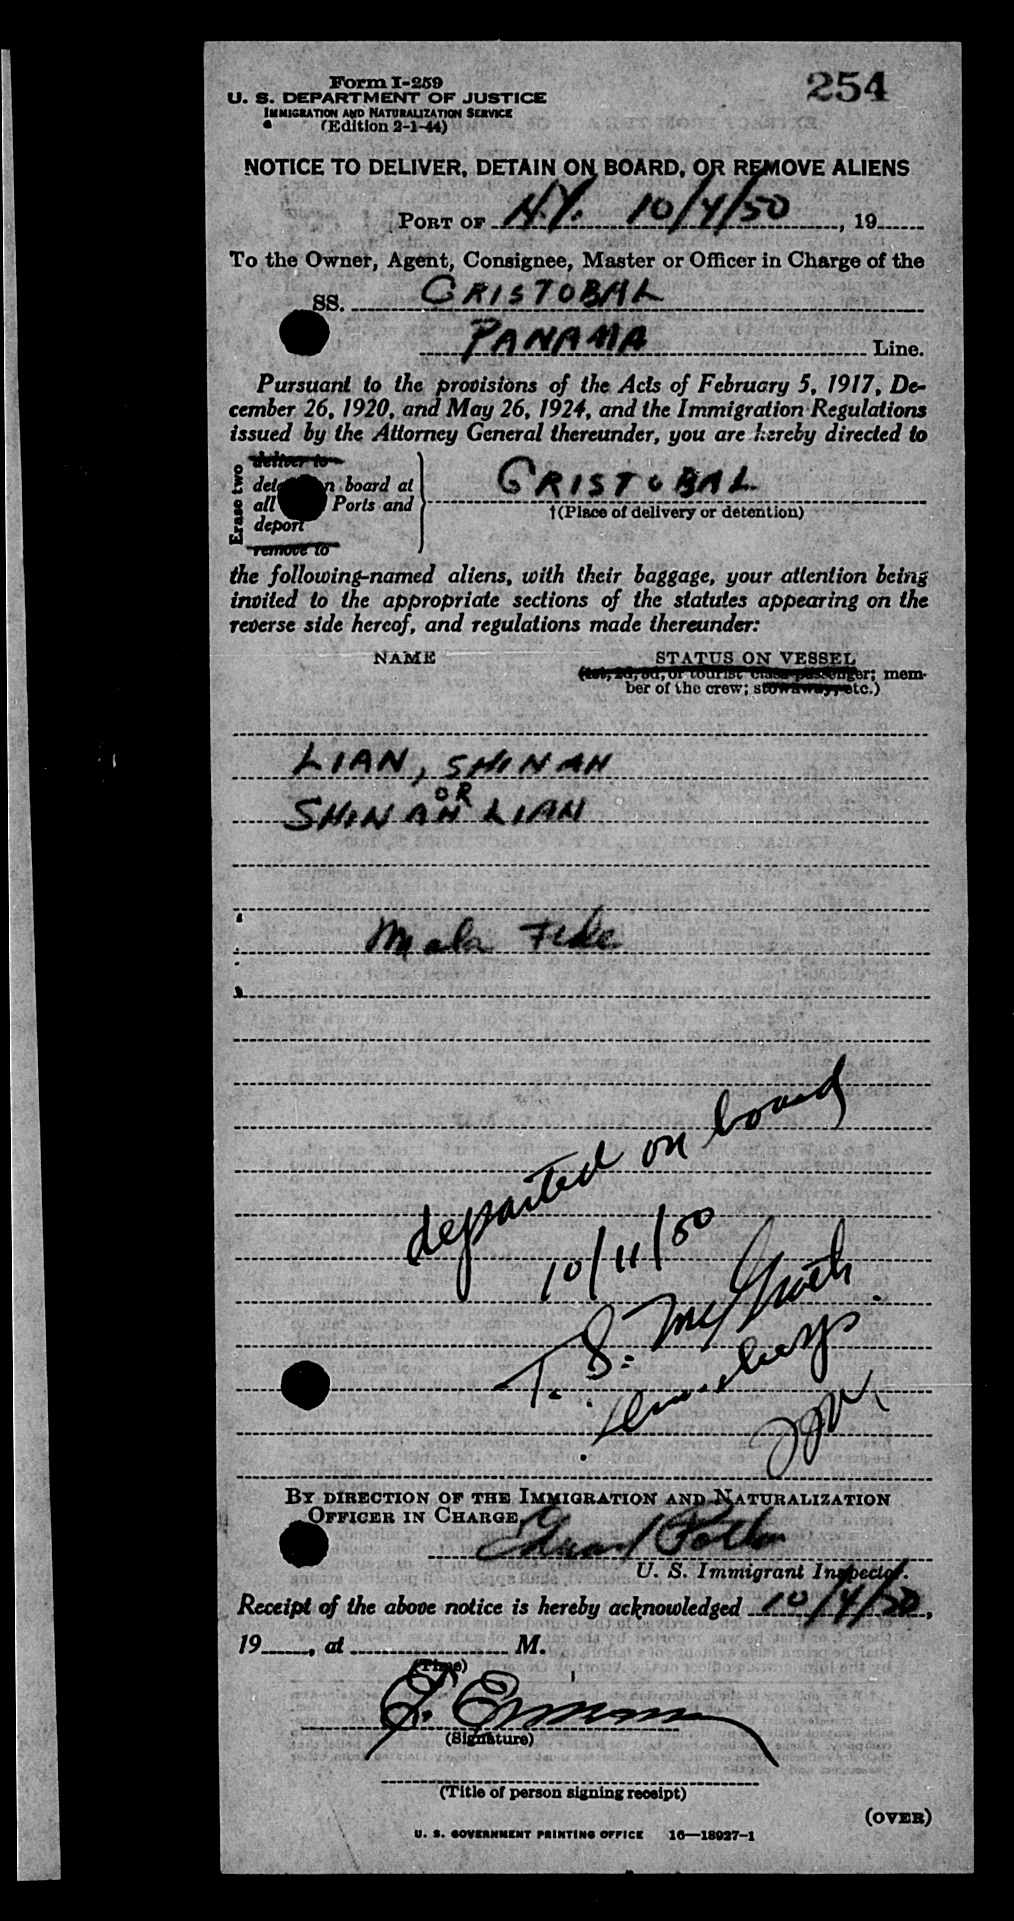 254
Form I-259
U. S. DEPARTMENT OF JUSTICE
IMMIGRATION AND NATURALIZATION SERVICE
(Edition 2-1-44)
NOTICE TO DELIVER, DETAIN ON BOARD, OR REMOVE ALIENS
PORT OF N.Y. 10/4/50, 19
To the Owner, Agent, Consignee, Master or Officer in Charge of the
SS. CRISTOBAL
PANAMA Line.
Pursuant to the provisions of the Acts of February 5, 1917, De-
cember 26, 1920, and May 26, 1924, and the Immigration Regulations
issued by the Attorney General thereunder, you are hereby directed to
Erase two
deliver to
board at
all Ports and
deport
remove to
CRISTOBAL
†(Place of delivery or detention)
the following-named aliens, with their baggage, your attention being
invited to the appropriate sections of the statutes appearing on the
reverse side hereof, and regulations made thereunder:
NAME STATUS ON VESSEL
(1st, 2d, 3d, or tourist class passenger; mem-
ber of the crew; stowaway, etc.)
LIAN, SHINAH
OR
SHINAH LIAN
Mala Fide
departed on board
10/11/50
T. S. McGrath
BY DIRECTION OF THE IMMIGRATION AND NATURALIZATION
OFFICER IN CHARGE,
U. S. Immigrant Inspector.
Receipt of the above notice is hereby acknowledged 10/4/50,
19, at M.
(Time)
(Signature)
(Title of person signing receipt)
(OVER)
U. S. GOVERNMENT PRINTING OFFICE 16—18927-1